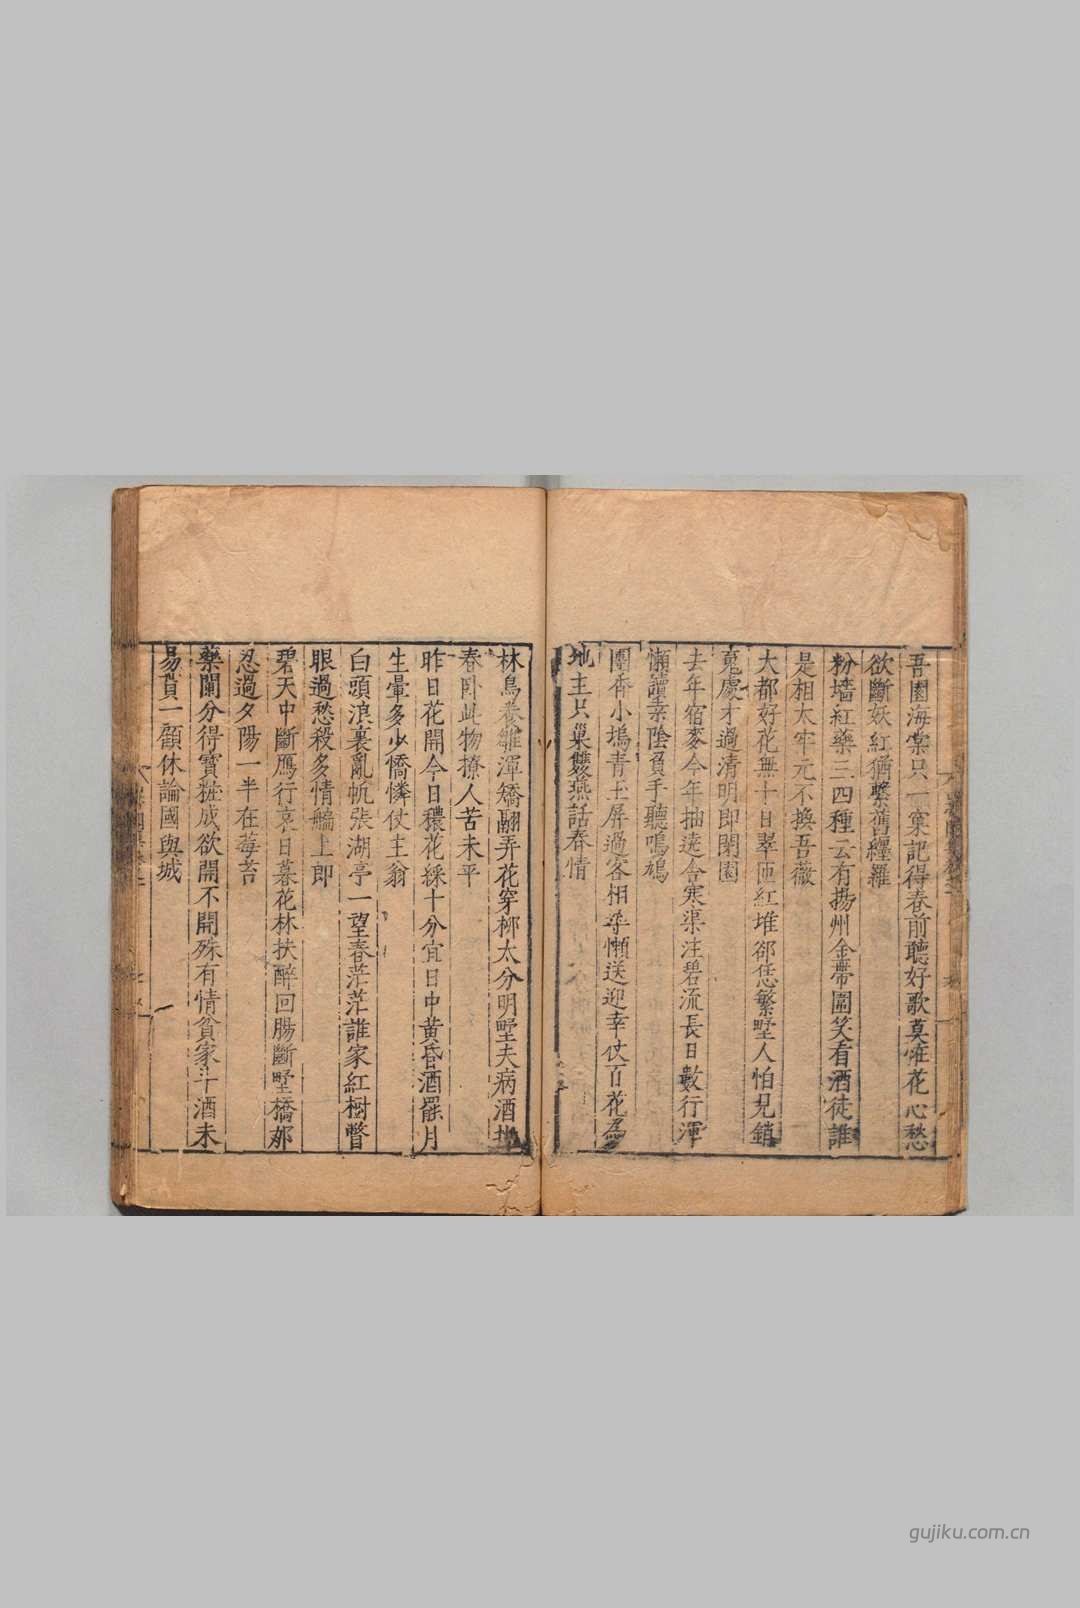 吾園海棠只一窠記得春前聽好歌莫惟花心愁
欲斷妖紅猶繫舊纏羅
粉墻紅藥三四種云有揚州金帶圍笑看酒徒誰
是相太牢元不換吾薇
大都好花無十日翠匝紅堆郤恁繁墅人怕見銷
䰟處才過清明即閉園
去年宿麥今年抽遶舍寒渠注碧流長日數行渾
懶讀桒陰負手聽鳴鳩
團香小塢青玉屏過客相尋懶送迎幸仗百花為
地主只巢雙燕話春情
林鳥養雛渾矯翮弄花穿柳太分明墅夫病酒
春卧此物撩人苦未平
昨日花開今日穠花綵十分宜日中黄昏酒罷月
生暈多少憍憐仗主翁
白頭浪裏亂帆張湖亭一望春茫茫誰家紅樹瞥
眼過愁殺多情艫上郎
碧天中斷鴈行哀日暮花林扶醉回腸斷墅橋那
忍過夕陽一半在莓苔
藥闌分得寳粧成欲開不開殊有情貧家斗酒未
易貰一顧休論國與城
gujiku.com.cn